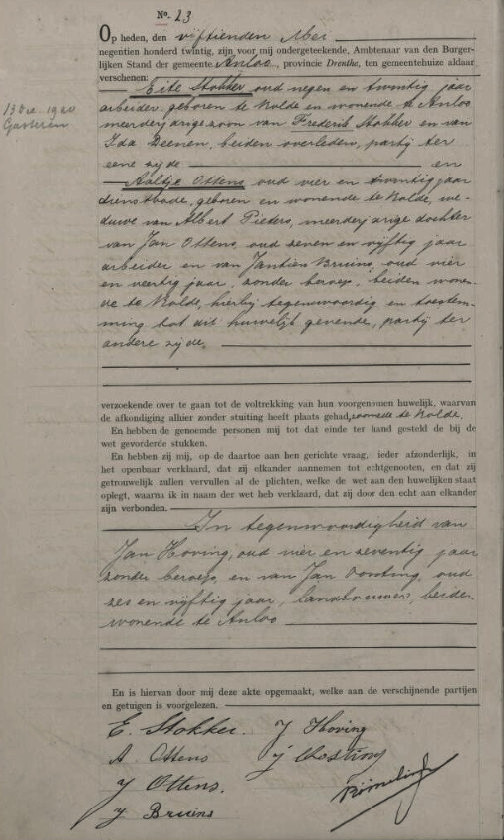 No. 23
Op heden, den vijftienden Mei
negentien honderd twintig, zijn voor mij ondergeteekende, Ambtenaar van den Burger-
lijken Stand der gemeente Anloo, provincie Drenthe, ten gemeentehuize aldaar
verschenen:
Eite Stokker oud negen en twintig jaar
arbeider, geboren te Rolde en wonende te Anloo
meerderjarige zoon van Frederik Stokker en van
Ida Deenen, beiden overleden, partij ter
eene zijde en
13 Dec. 1920
Gasteren
Aaltje Ottens, oud vier en twintig jaar
dienstbode, geboren en wonende te Rolde, we-
duwe van Albert Pieters, meerderjarige dochter
van Jan Ottens, oud zeven en vijftig jaar
arbeider en van Jantien Bruins, oud vier
en veertig jaar, zonder beroep, beiden wonen-
de te Rolde, hierbij tegenwoordig en toestem-
ming tot dit huwelijk gevende, partij ter
andere zijde,
verzoekende over te gaan tot de voltrekking van hun voorgenomen huwelijk, waarvan
de afkondiging alhier zonder stuiting heeft plaats gehad, te Rolde.
En hebben de genoemde personen mij tot dat einde ter hand gesteld de bij de
wet gevorderde stukken.
En hebben zij mij, op de daartoe aan hen gerichte vraag, ieder afzonderlijk, in
het openbaar verklaard, dat zij elkander aannemen tot echtgenooten, en dat zij
getrouwelijk zullen vervullen al de plichten, welke de wet aan den huwelijken staat
oplegt, waarna ik in naam der wet heb verklaard, dat zij door den echt aan elkander
zijn verbonden.
In tegenwoordigheid van
Jan Hoving, oud vier en zeventig jaar
zonder beroep, en van Jan Oosting, oud
zes en vijftig jaar, landbouwer, beiden
wonende te Anloo
En is hiervan door mij deze akte opgemaakt, welke aan de verschijnende partijen
en getuigen is voorgelezen.
E. Stokker. J Hoving
A Ottens J Oosting
J Ottens.
J Bruins